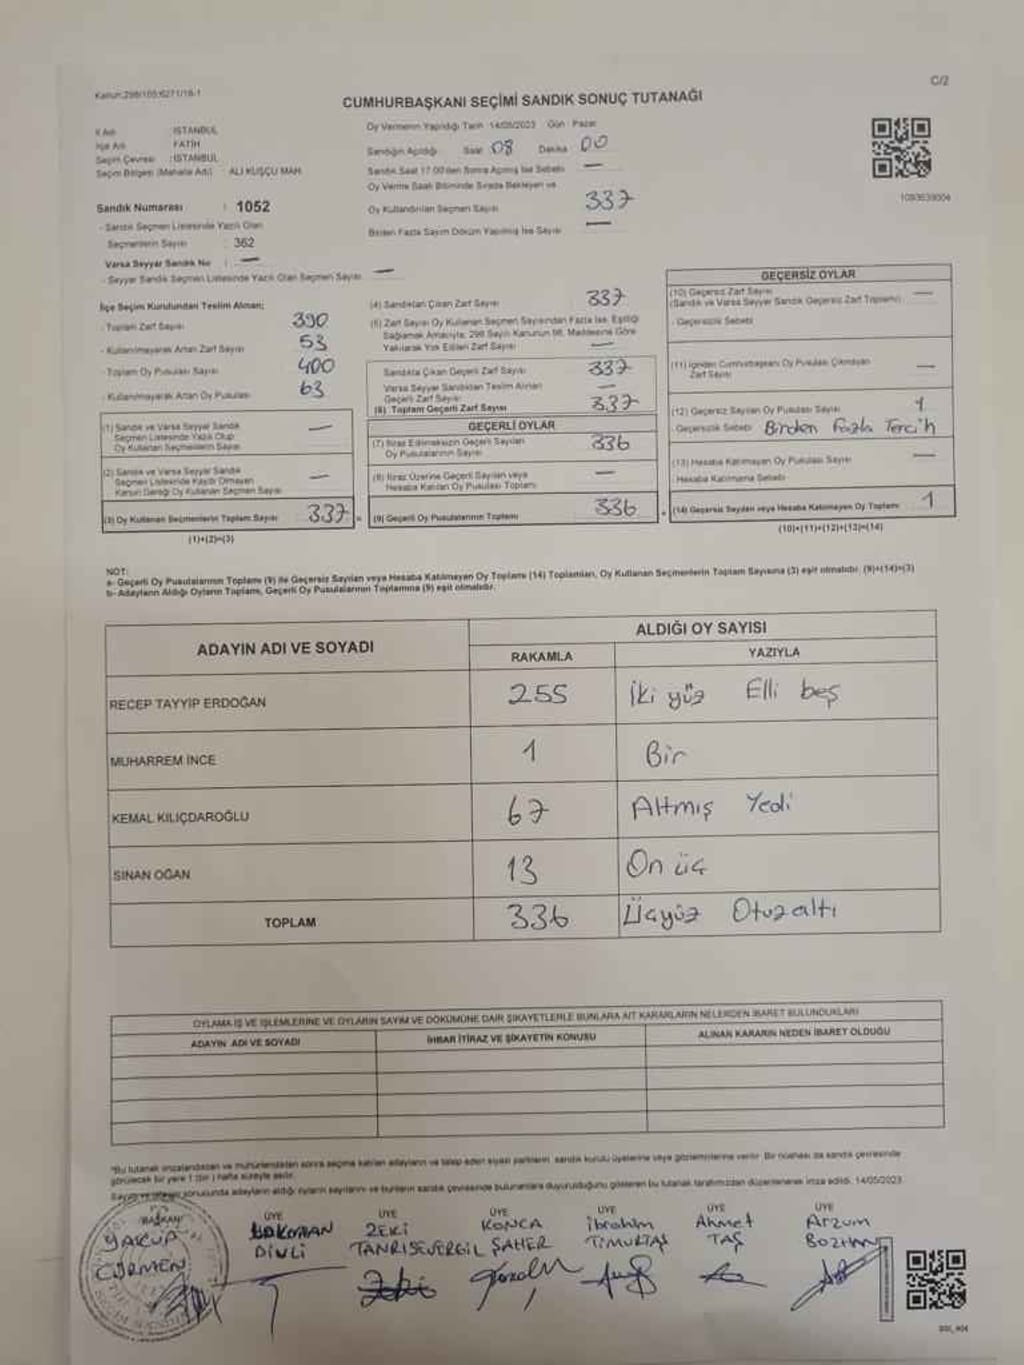 Kanun:298/105;6271/18-1
C/2
CUMHURBAŞKANI SEÇİMİ SANDIK SONUÇ TUTANAĞI
İl Adı : İSTANBUL
İlçe Adı : FATİH
Seçim Çevresi : İSTANBUL
Seçim Bölgesi (Mahalle Adı) ALİ KUŞÇU MAH.
Sandık Numarası : 1052
- Sandık Seçmen Listesinde Yazılı Olan
Seçmenlerin Sayısı : 362
Varsa Seyyar Sandık No : —
- Seyyar Sandık Seçmen Listesinde Yazılı Olan Seçmen Sayısı —
Oy Vermenin Yapıldığı Tarih 14/05/2023 Gün : Pazar
Sandığın Açıldığı Saat 08 Dakika 00
Sandık Saat 17:00'den Sonra Açılmış İse Sebebi —
Oy Verme Saati Bitiminde Sırada Bekleyen ve
Oy Kullandırılan Seçmen Sayısı 337
Birden Fazla Sayım Döküm Yapılmış İse Sayısı —
1093639004
İlçe Seçim Kurulundan Teslim Alınan;
- Toplam Zarf Sayısı 390
- Kullanılmayarak Artan Zarf Sayısı 53
- Toplam Oy Pusulası Sayısı 400
- Kullanılmayarak Artan Oy Pusulası 63
(1) Sandık ve Varsa Seyyar Sandık
Seçmen Listesinde Yazılı Olup
Oy Kullanan Seçmenlerin Sayısı —
(2) Sandık ve Varsa Seyyar Sandık
Seçmen Listesinde Kaydı Olmayan
Kanun Gereği Oy Kullanan Seçmen Sayısı —
(3) Oy Kullanan Seçmenlerin Toplam Sayısı 337
(1)+(2)=(3)
(4) Sandıktan Çıkan Zarf Sayısı 337
(5) Zarf Sayısı Oy Kullanan Seçmen Sayısından Fazla İse, Eşitliği
Sağlamak Amacıyla; 298 Sayılı Kanunun 98. Maddesine Göre
Yakılarak Yok Edilen Zarf Sayısı —
Sandıkta Çıkan Geçerli Zarf Sayısı 337
Varsa Seyyar Sandıktan Teslim Alınan
Geçerli Zarf Sayısı —
(6) Toplam Geçerli Zarf Sayısı 337
GEÇERLİ OYLAR
(7) İtiraz Edilmeksizin Geçerli Sayılan
Oy Pusulalarının Sayısı 336
(8) İtiraz Üzerine Geçerli Sayılan veya
Hesaba Katılan Oy Pusulası Toplamı —
(9) Geçerli Oy Pusulalarının Toplamı 336
GEÇERSİZ OYLAR
(10) Geçersiz Zarf Sayısı —
(Sandık ve Varsa Seyyar Sandık Geçersiz Zarf Toplamı)
- Geçersizlik Sebebi
(11) İçinden Cumhurbaşkanı Oy Pusulası Çıkmayan
Zarf Sayısı —
(12) Geçersiz Sayılan Oy Pusulası Sayısı 1
Geçersizlik Sebebi Birden Fazla Tercih
(13) Hesaba Katılmayan Oy Pusulası Sayısı —
- Hesaba Katılmama Sebebi
(14) Geçersiz Sayılan veya Hesaba Katılmayan Oy Toplamı 1
(10)+(11)+(12)+(13)=(14)
NOT:
a- Geçerli Oy Pusulalarının Toplamı (9) ile Geçersiz Sayılan veya Hesaba Katılmayan Oy Toplamı (14) Toplamları, Oy Kullanan Seçmenlerin Toplam Sayısına (3) eşit olmalıdır. (9)+(14)=(3)
b- Adayların Aldığı Oyların Toplamı, Geçerli Oy Pusulalarının Toplamına (9) eşit olmalıdır.
ADAYIN ADI VE SOYADI
ALDIĞI OY SAYISI
RAKAMLA YAZIYLA
RECEP TAYYİP ERDOĞAN 255 İki yüz Elli beş
MUHARREM İNCE 1 Bir
KEMAL KILIÇDAROĞLU 67 Altmış Yedi
SİNAN OĞAN 13 On üç
TOPLAM 336 Üçyüz Otuzaltı
OYLAMA İŞ VE İŞLEMLERİNE VE OYLARIN SAYIM VE DÖKÜMÜNE DAİR ŞİKAYETLERLE BUNLARA AİT KARARLARIN NELERDEN İBARET BULUNDUKLARI
ADAYIN ADI VE SOYADI İHBAR İTİRAZ VE ŞİKAYETİN KONUSU ALINAN KARARIN NEDEN İBARET OLDUĞU
*Bu tutanak imzalandıktan ve mühürlendikten sonra seçime katılan adayların ve talep eden siyasi partilerin sandık kurulu üyelerine veya gözlemcilerine verilir. Bir nüshası da sandık çevresinde
görülecek bir yere 1 (bir) hafta süreyle asılır.
sonucunda adayların aldığı oyların sayılarını ve bunların sandık çevresinde bulunanlara duyurulduğunu gösteren bu tutanak tarafımızdan düzenlenerek imza edildi. 14/05/2023
BAŞKAN ÜYE ÜYE ÜYE ÜYE ÜYE ÜYE
YAKUP ZEKİ KONCA İbrahim Ahmet Arzum
DİNLİ TANRISEVERGİL ŞAHER TİMURTAŞ TAŞ